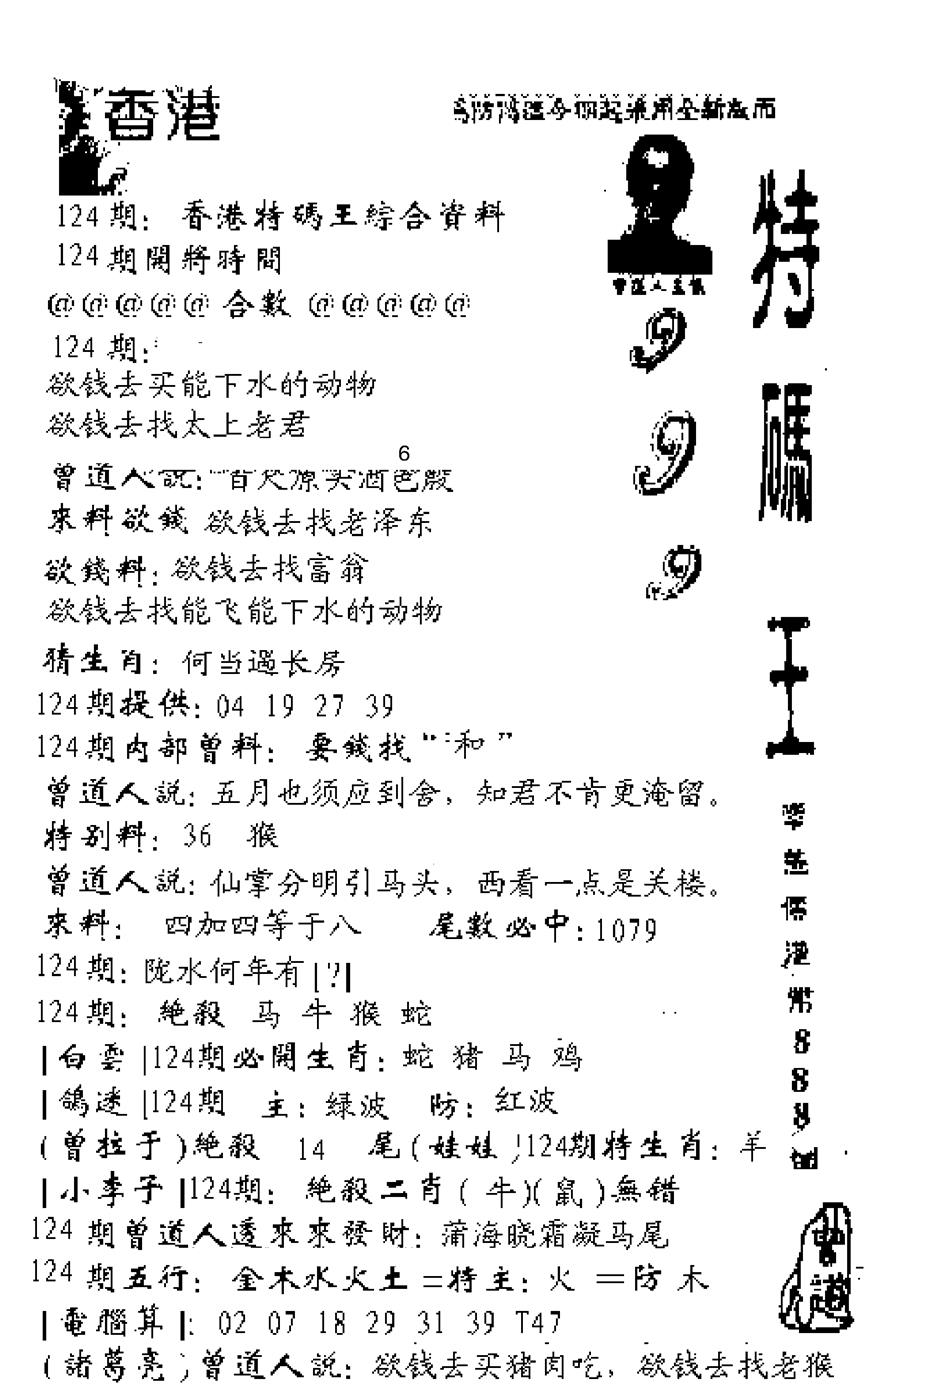 香港
特碼王
999
曾道人主?
124期：香港特碼王綜合資料
124期開將時間
@@@@@合數@@@@@
124期：
欲钱去买能下水的动物
欲钱去找太上老君
6
曾道人説：
來料欲錢 欲钱去找老泽东
欲錢料：欲钱去找富翁
欲钱去找能飞能下水的动物
猜生肖：何当遇长房
124期提供：04 19 27 39
124期内部曾料：要錢找“ 和 ”
曾道人説：五月也须应到舍，知君不肯更淹留。
特别料：36 猴
曾道人説：仙掌分明引马头，西看一点是关楼。
來料： 四加四等于八 尾數必中：1079
124期：陇水何年有|?|
124期： 絶殺 马 牛 猴 蛇
|白雲|124期必開生肖：蛇 猪 马 鸡
|鴿迷|124期 主：绿波 防：红波
(曾拉于)絶殺 14 尾(娃娃)124期特生肖：羊
|小李子|124期： 絶殺二肖(牛)(鼠)無错
124期曾道人透來來發財：蒲海晓霜凝马尾
124期五行： 金木水火土=特主：火 =防木
|電腦算|：02 07 18 29 31 39 T47
(諸葛亮)曾道人説：欲钱去买猪肉吃，欲钱去找老猴
888
曾道